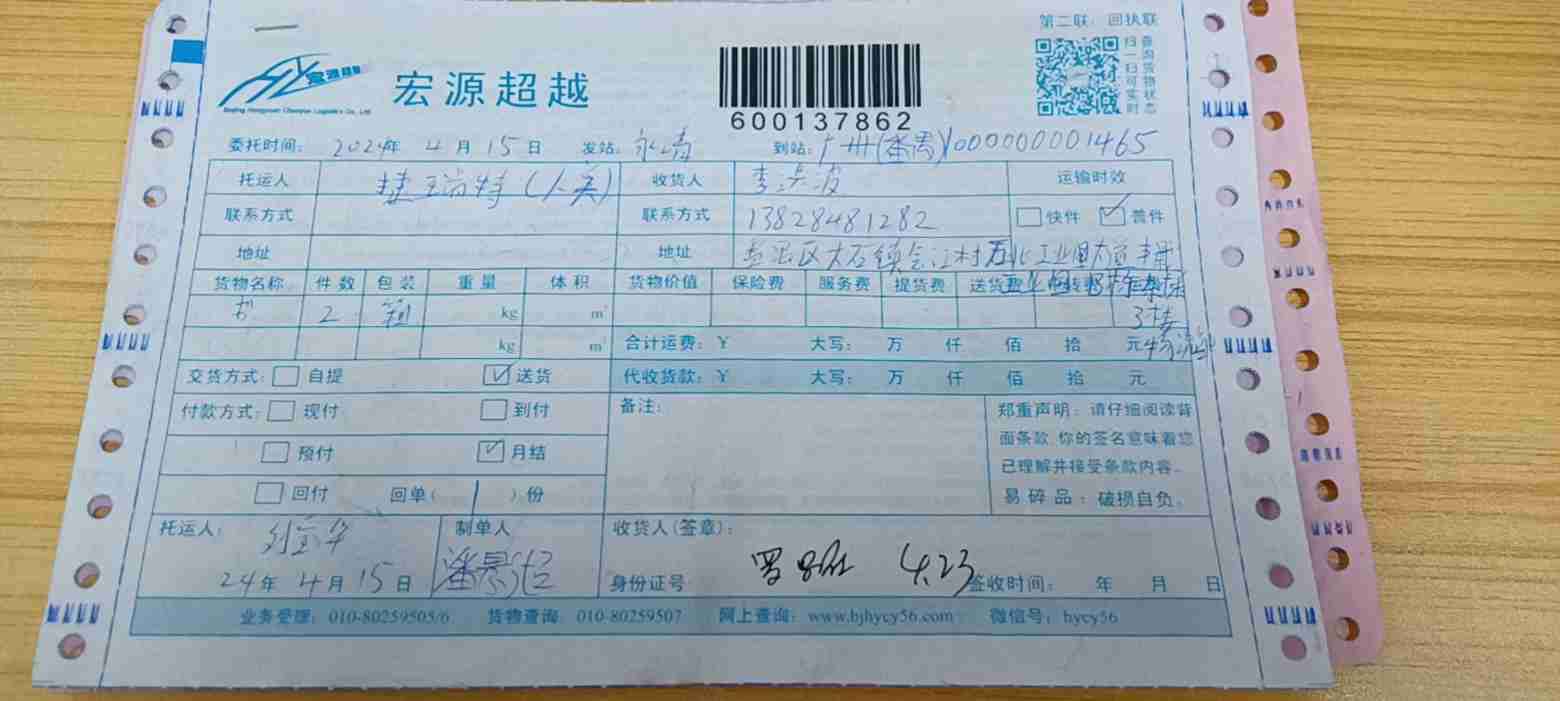 第二联：回执联
扫一扫可实时
查询货物状态
宏源超越
宏源超越
Beijing Hongyuan Chaoyue Logistics Co., Ltd
600137862
委托时间： 2024年 4月 15日 发站： 永清 到站： 广州(番禺) 000000001465
托运人 捷瑞特(人美) 收货人 李 波 运输时效
联系方式 联系方式 13828481282 快件 普件
地址 地址 番禺区大石镇会江村石北工业
货物名称 件数 包装 重量 体积 货物价值 保险费 服务费 提货费 送货
书 2 箱 kg m³ 3楼
kg m³ 合计运费：￥ 大写： 万 仟 佰 拾 元
交货方式： 自提 送货 代收货款：￥ 大写： 万 仟 佰 拾 元
付款方式： 现付 到付 备注： 郑重声明：请仔细阅读背
面条款,你的签名意味着您
预付 月结
已理解并接受条款内容。
回付 回单( 1 )份 易碎品：破损自负。
托运人： 制单人 收货人(签章)：
24年 4月 15日 潘 4.23
身份证号 签收时间： 年 月 日
业务受理：010-80259505/6 货物查询：010-80259507 网上查询：www.bjhycy56.com 微信号：hycy56